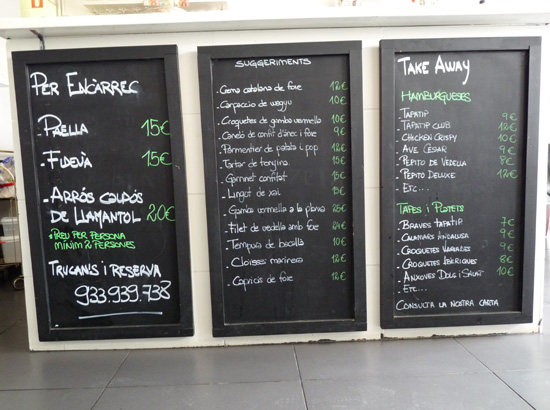 PER ENCÀRREC
- PAELLA 15€
- FIDEVÀ 15€
- ARRÓS CALDÓS
DE LLAMANTOL 20€
*PREU PER PERSONA
MÍNIM 2 PERSONES
TRUCA'NS I RESERVA
933.939.738
SUGGERIMENTS
- Crema catalana de foie 12€
- Carpaccio de wagyu 10€
- Croquetes de gamba vermella 10€
- Caneló de confit d'ànec i foie 9€
- Parmentier de patata i pop 12€
- Tartar de tonyina 15€
- Garrinet confitat 15€
- Lingot de xai 15€
- Gamba vermella a la planxa 25€
- Filet de vedella amb foie 24€
- Tempura de bacallà 10€
- Cloïsses marinera 12€
- Capricis de foie 12€
TAKE AWAY
HAMBURGUESES
- TAPATIP 9€
- TAPATIP CLUB 12€
- CHICKEN CRISPY 10€
- AVE CÉSAR 9€
- PEPITO DE VEDELLA 8€
- PEPITO DELUXE 12€
- ETC...
TAPES I PLATETS
- BRAVES TAPATIP 7€
- CALAMARS ANDALUSA 9€
- CROQUETES VARIADES 9€
- CROQUETES IBÈRIQUES 8€
- ANXOVES DOLÇ I SALAT 10€
- ETC...
CONSULTA LA NOSTRA CARTA